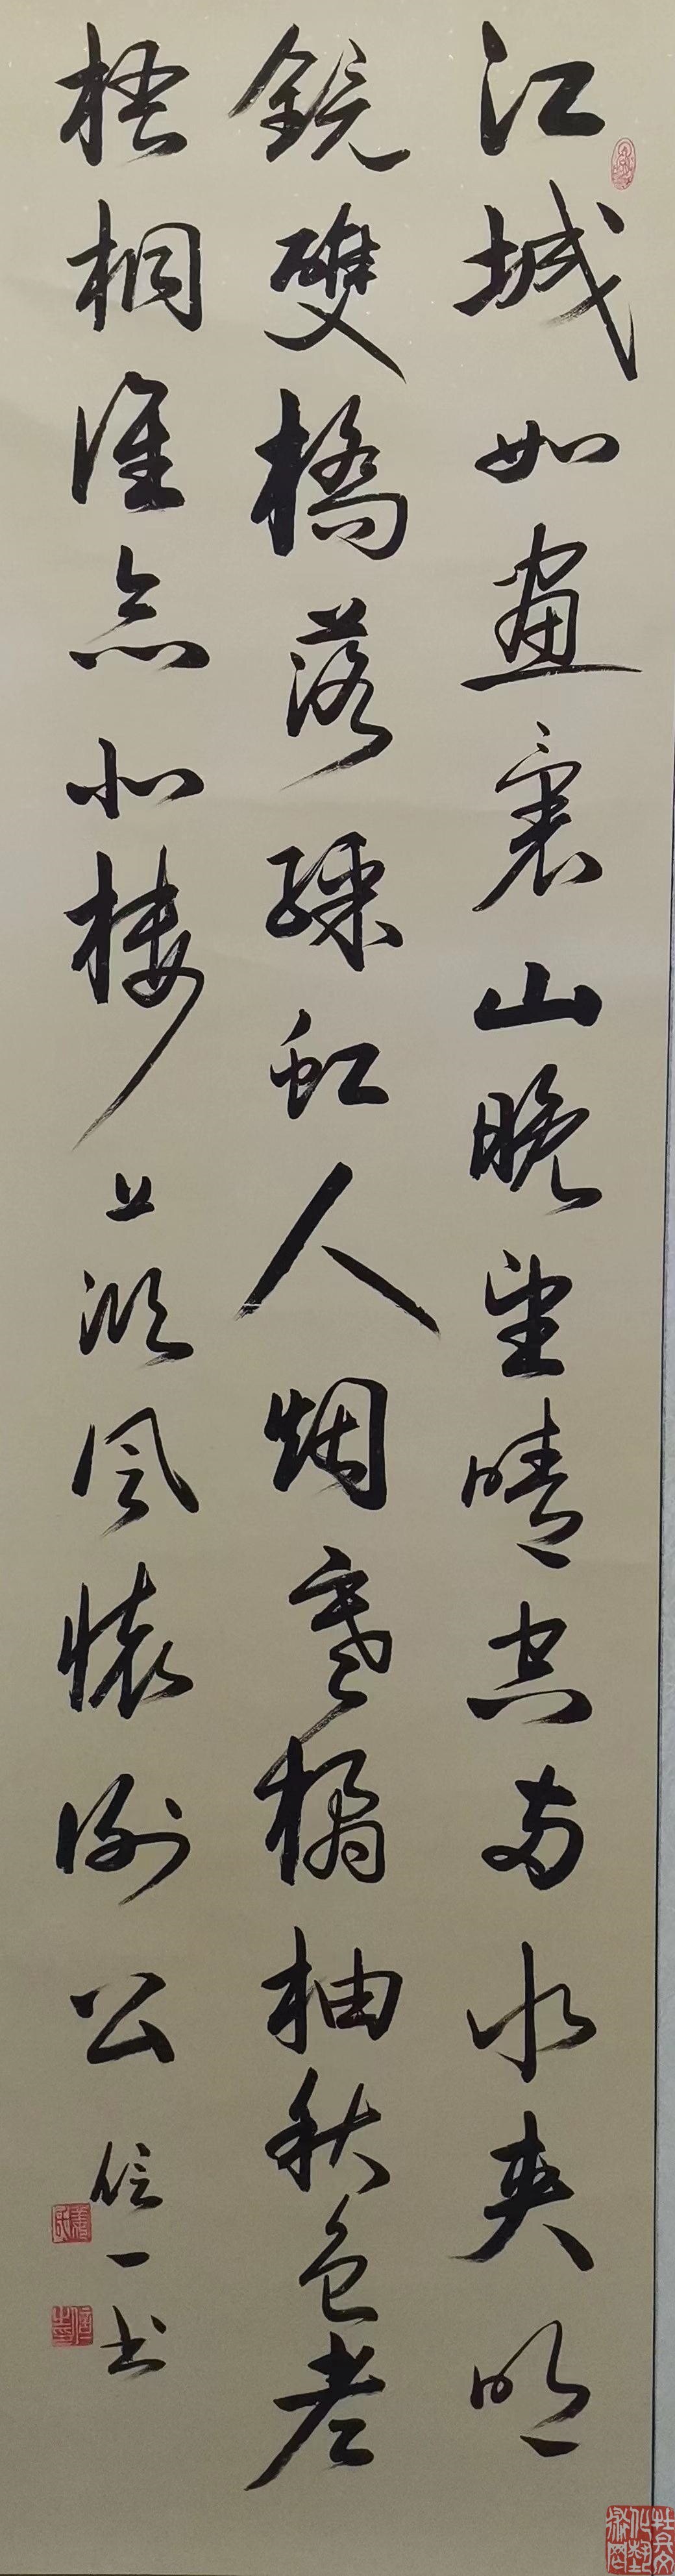 江城如畫裏山晚望晴空兩水夾明
鏡雙橋落綵虹人烟寒橘柚秋色老
梧桐誰念北樓上臨風懷謝公
信一书